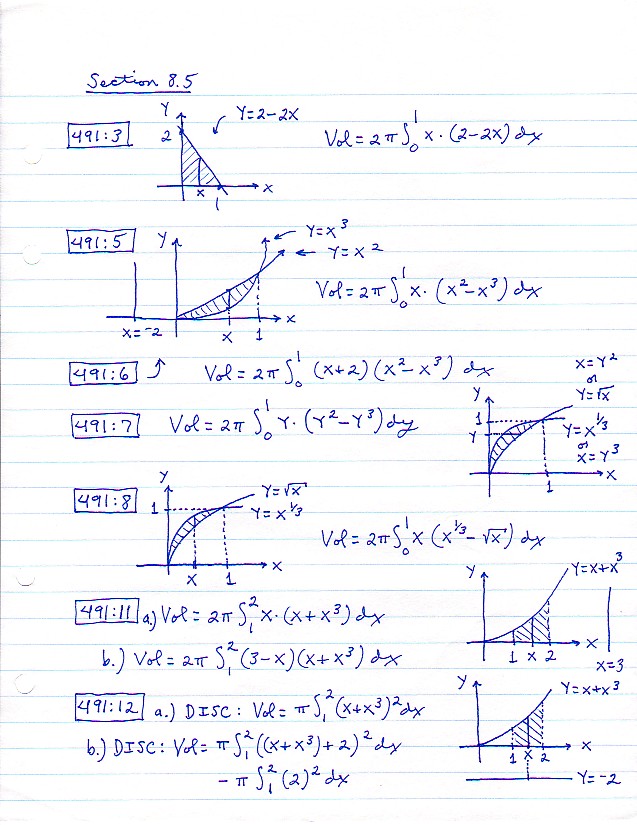 Section 8.5
491:3
Y
2
Y=2-2X
X
1
X
Vol = 2π∫₀¹ X·(2-2X) dx
491:5
Y
Y=X³
Y=X²
X=-2
X
1
X
Vol = 2π∫₀¹ X·(X²-X³) dx
491:6 ↑ Vol = 2π∫₀¹ (X+2)(X²-X³) dx
491:7 Vol = 2π∫₀¹ Y·(Y²-Y³) dy
X=Y²
or
Y=√X
Y
1
Y
Y=X^(1/3)
or
X=Y³
X
1
491:8
Y
1
Y=√X
Y=X^(1/3)
X
1
X
Vol = 2π∫₀¹ X(X^(1/3)-√X) dx
491:11 a.) Vol = 2π∫₁² X·(X+X³) dx
b.) Vol = 2π∫₁² (3-X)(X+X³) dx
Y
Y=X+X³
1 X 2
X
X=3
491:12 a.) DISC: Vol = π∫₁² (X+X³)² dx
b.) DISC: Vol = π∫₁² ((X+X³)+2)² dx
- π∫₁² (2)² dx
Y
Y=X+X³
1 X 2
X
Y=-2